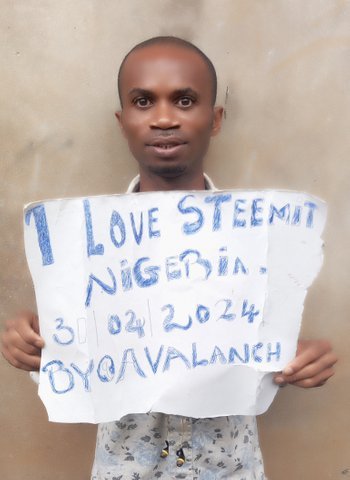 I LOVE STEEMIT
NIGERIA.
30/04/2024
BY@AVALANCH